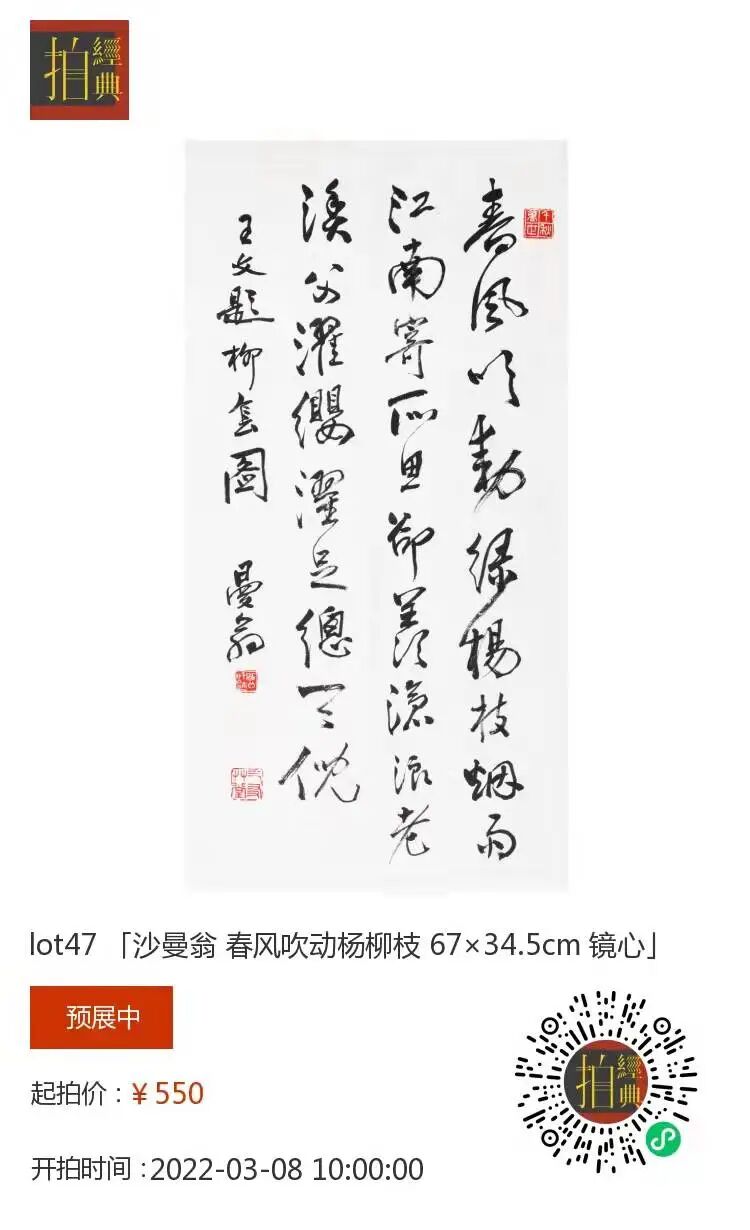 拍
經典
春風吹動緑楊枝烟雨
江南寄所思卻羨滄浪老
漁父濯纓濯足總天倪
王文題柳圖 曼翁
lot47 「沙曼翁 春风吹动杨柳枝 67×34.5cm 镜心」
预展中
起拍价:¥550
开拍时间:2022-03-08 10:00:00
拍
經典